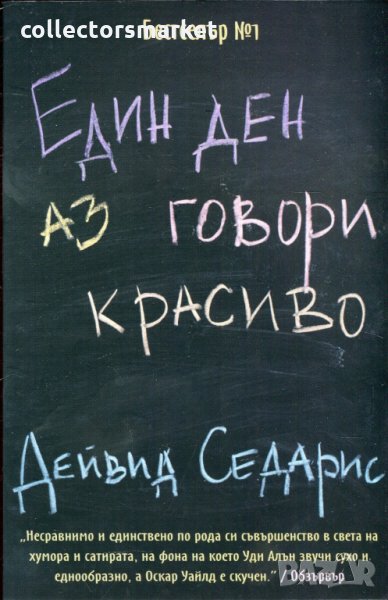 collectorsmarket
Бестселър №1
Един ден
аз говори
красиво
Дейвид Седарис
„Несравнимо и единствено по рода си съвършенство в света на
хумора и сатирата, на фона на което Уди Алън звучи сухо и
еднообразно, а Оскар Уайлд е скучен." / Обзървър
BAZAR